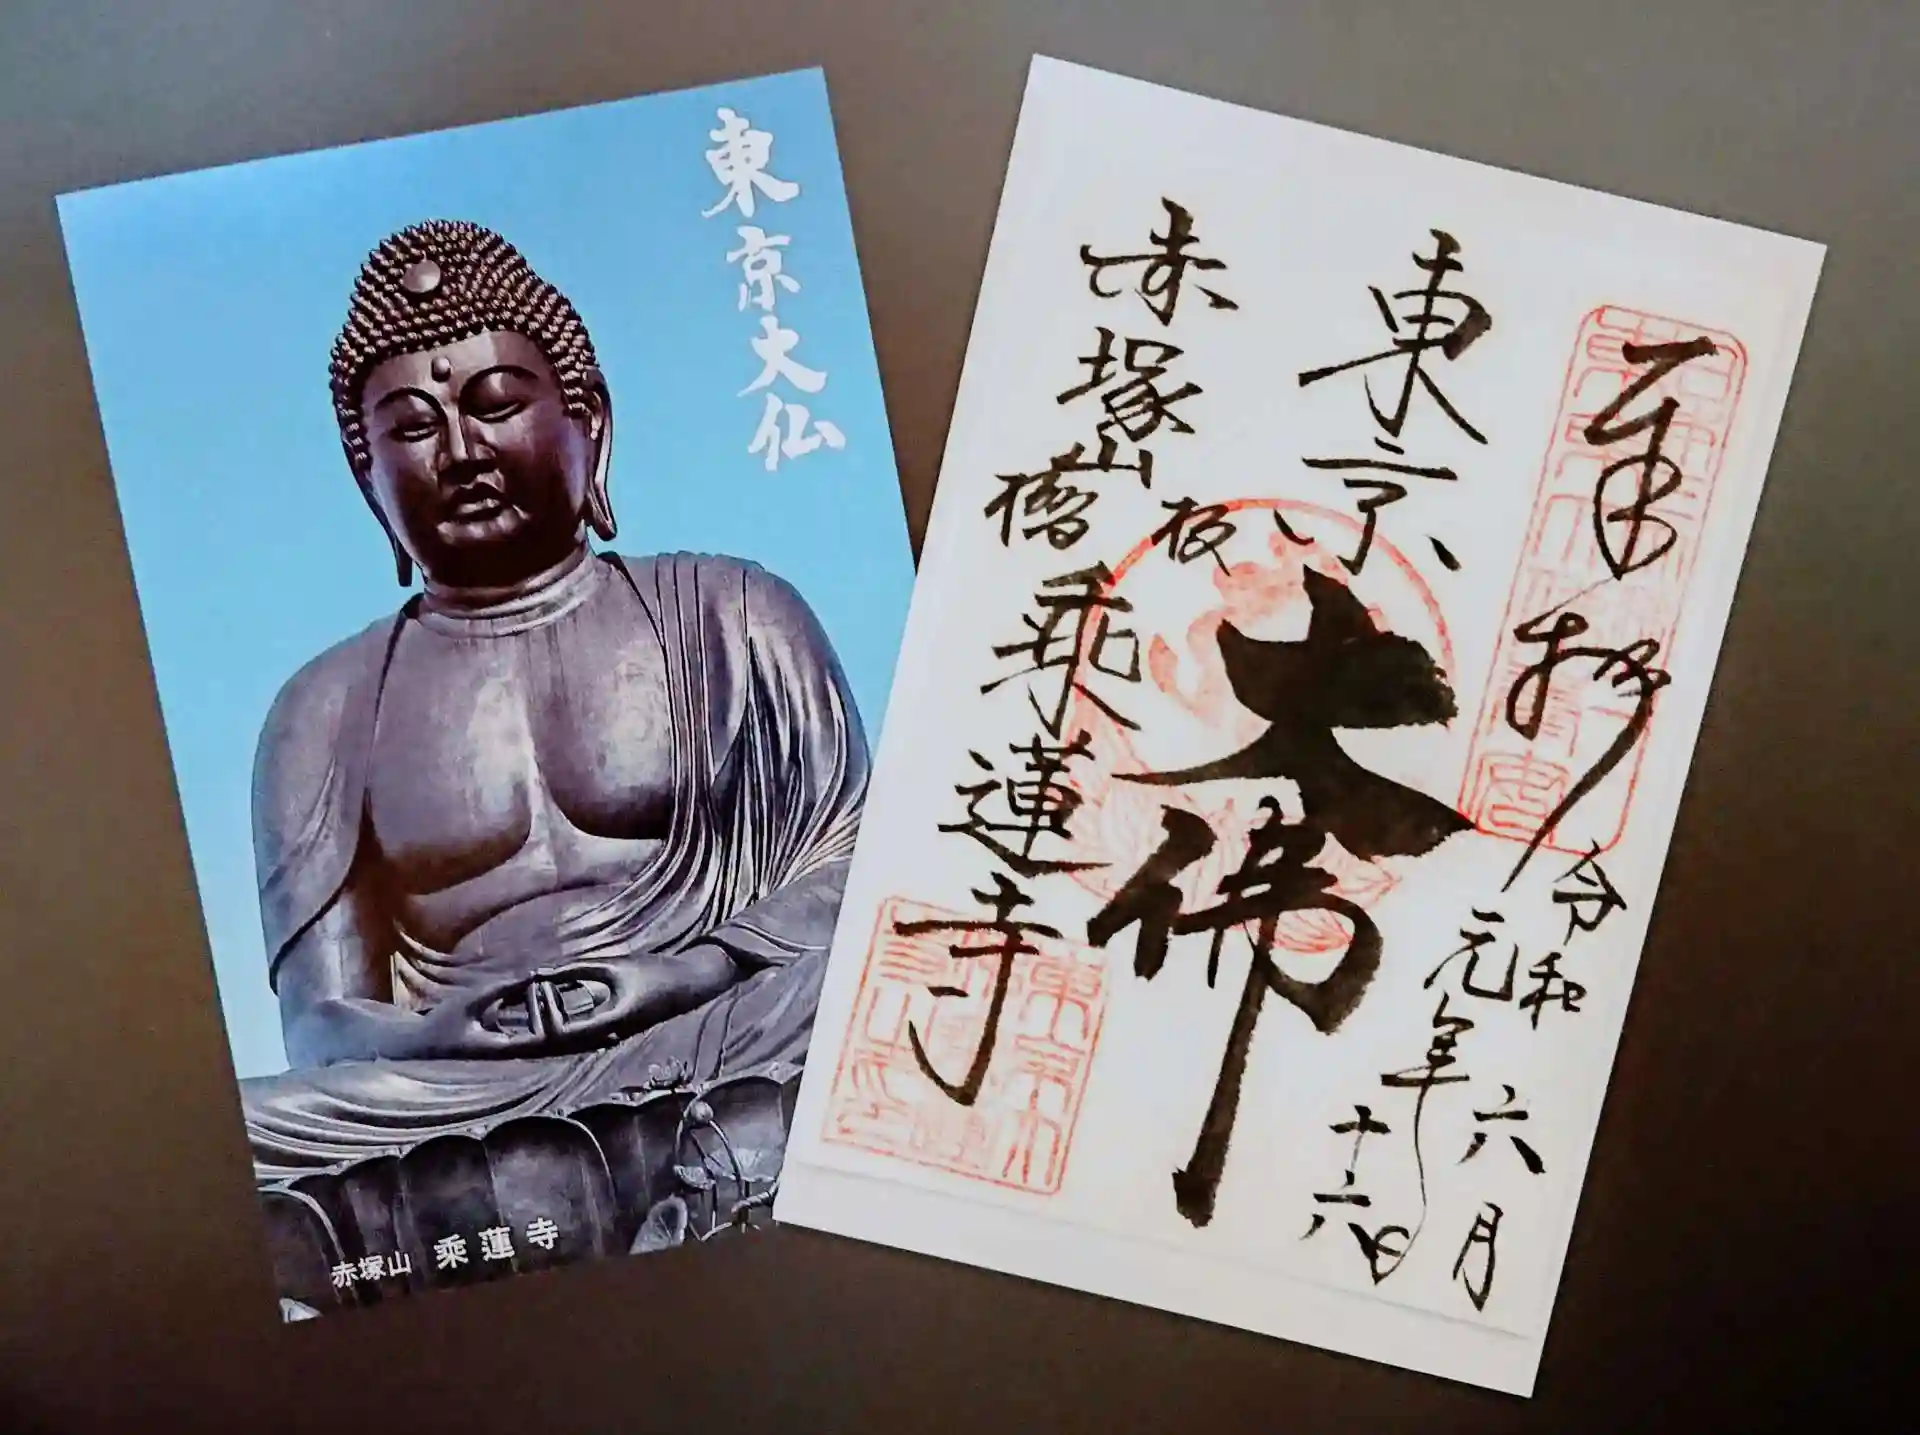 東京大仏
赤塚山 乗蓮寺
奉拝
令和元年六月十六日
東京大佛
赤塚山
板橋
乘蓮寺